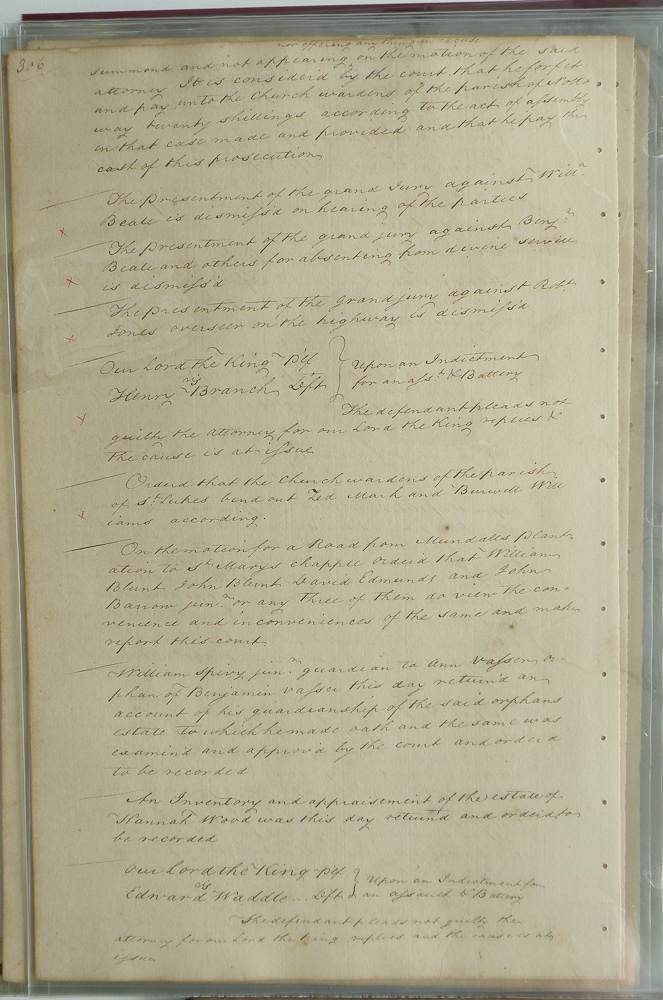 306
nor offering any thing in excuse
summond and not appearing on the motion of the said
attorney It is considerd by the court that he forfet
and pay unto the Church wardens of the parish of Notto
way twenty shillings according to the act of assembly
in that case made and provided and that he pay the
cost of this prosecution
The presentment of the grand Jury against Will.m
Beale is dismiss'd on hearing of the parties
The presentment of the grand jury against Benj.n
Beale and others for absenting from devine service
is dismiss'd
The presentment of the grand jury against Robt
Jones overseer on the highway is dismiss'd
Our Lord the King Plf
vs
Henry Branch Deft
Upon an Indictment
for an ass.t & Battery
The defendant pleads not
guilty the attorney for our Lord the King replies &
the cause is at issue
Orderd that the Church wardens of the parish
of S.t Lukes bind out Zed Mark and Burwell Will
iams according.
On the motion for a Road from Mundalls Plant
ation to S.t Marys chapple Orderd that William
Blunt John Blunt David Edmunds and John
Barrow jun.r or any Three of them do view the con
venience and inconveniences of the same and make
report this court
William Spivy jun.r guardian to Ann Vasser or
phan of Benjamin Vasser this day returnd an
account of his guardianship of the said orphans
estate to which he made oath and the same was
examind and approv'd by the court and orderd
to be recorded
An Inventory and appraisement of the estate of
Hannah Wood was this day returnd and orderd to
be recorded
Our Lord the King Plf
vs
Edward Waddle Deft
Upon an Indictment for
an assault & Battery
The defendant pleads not guilty the
attorney for our Lord the King replies and the cause is at
issue